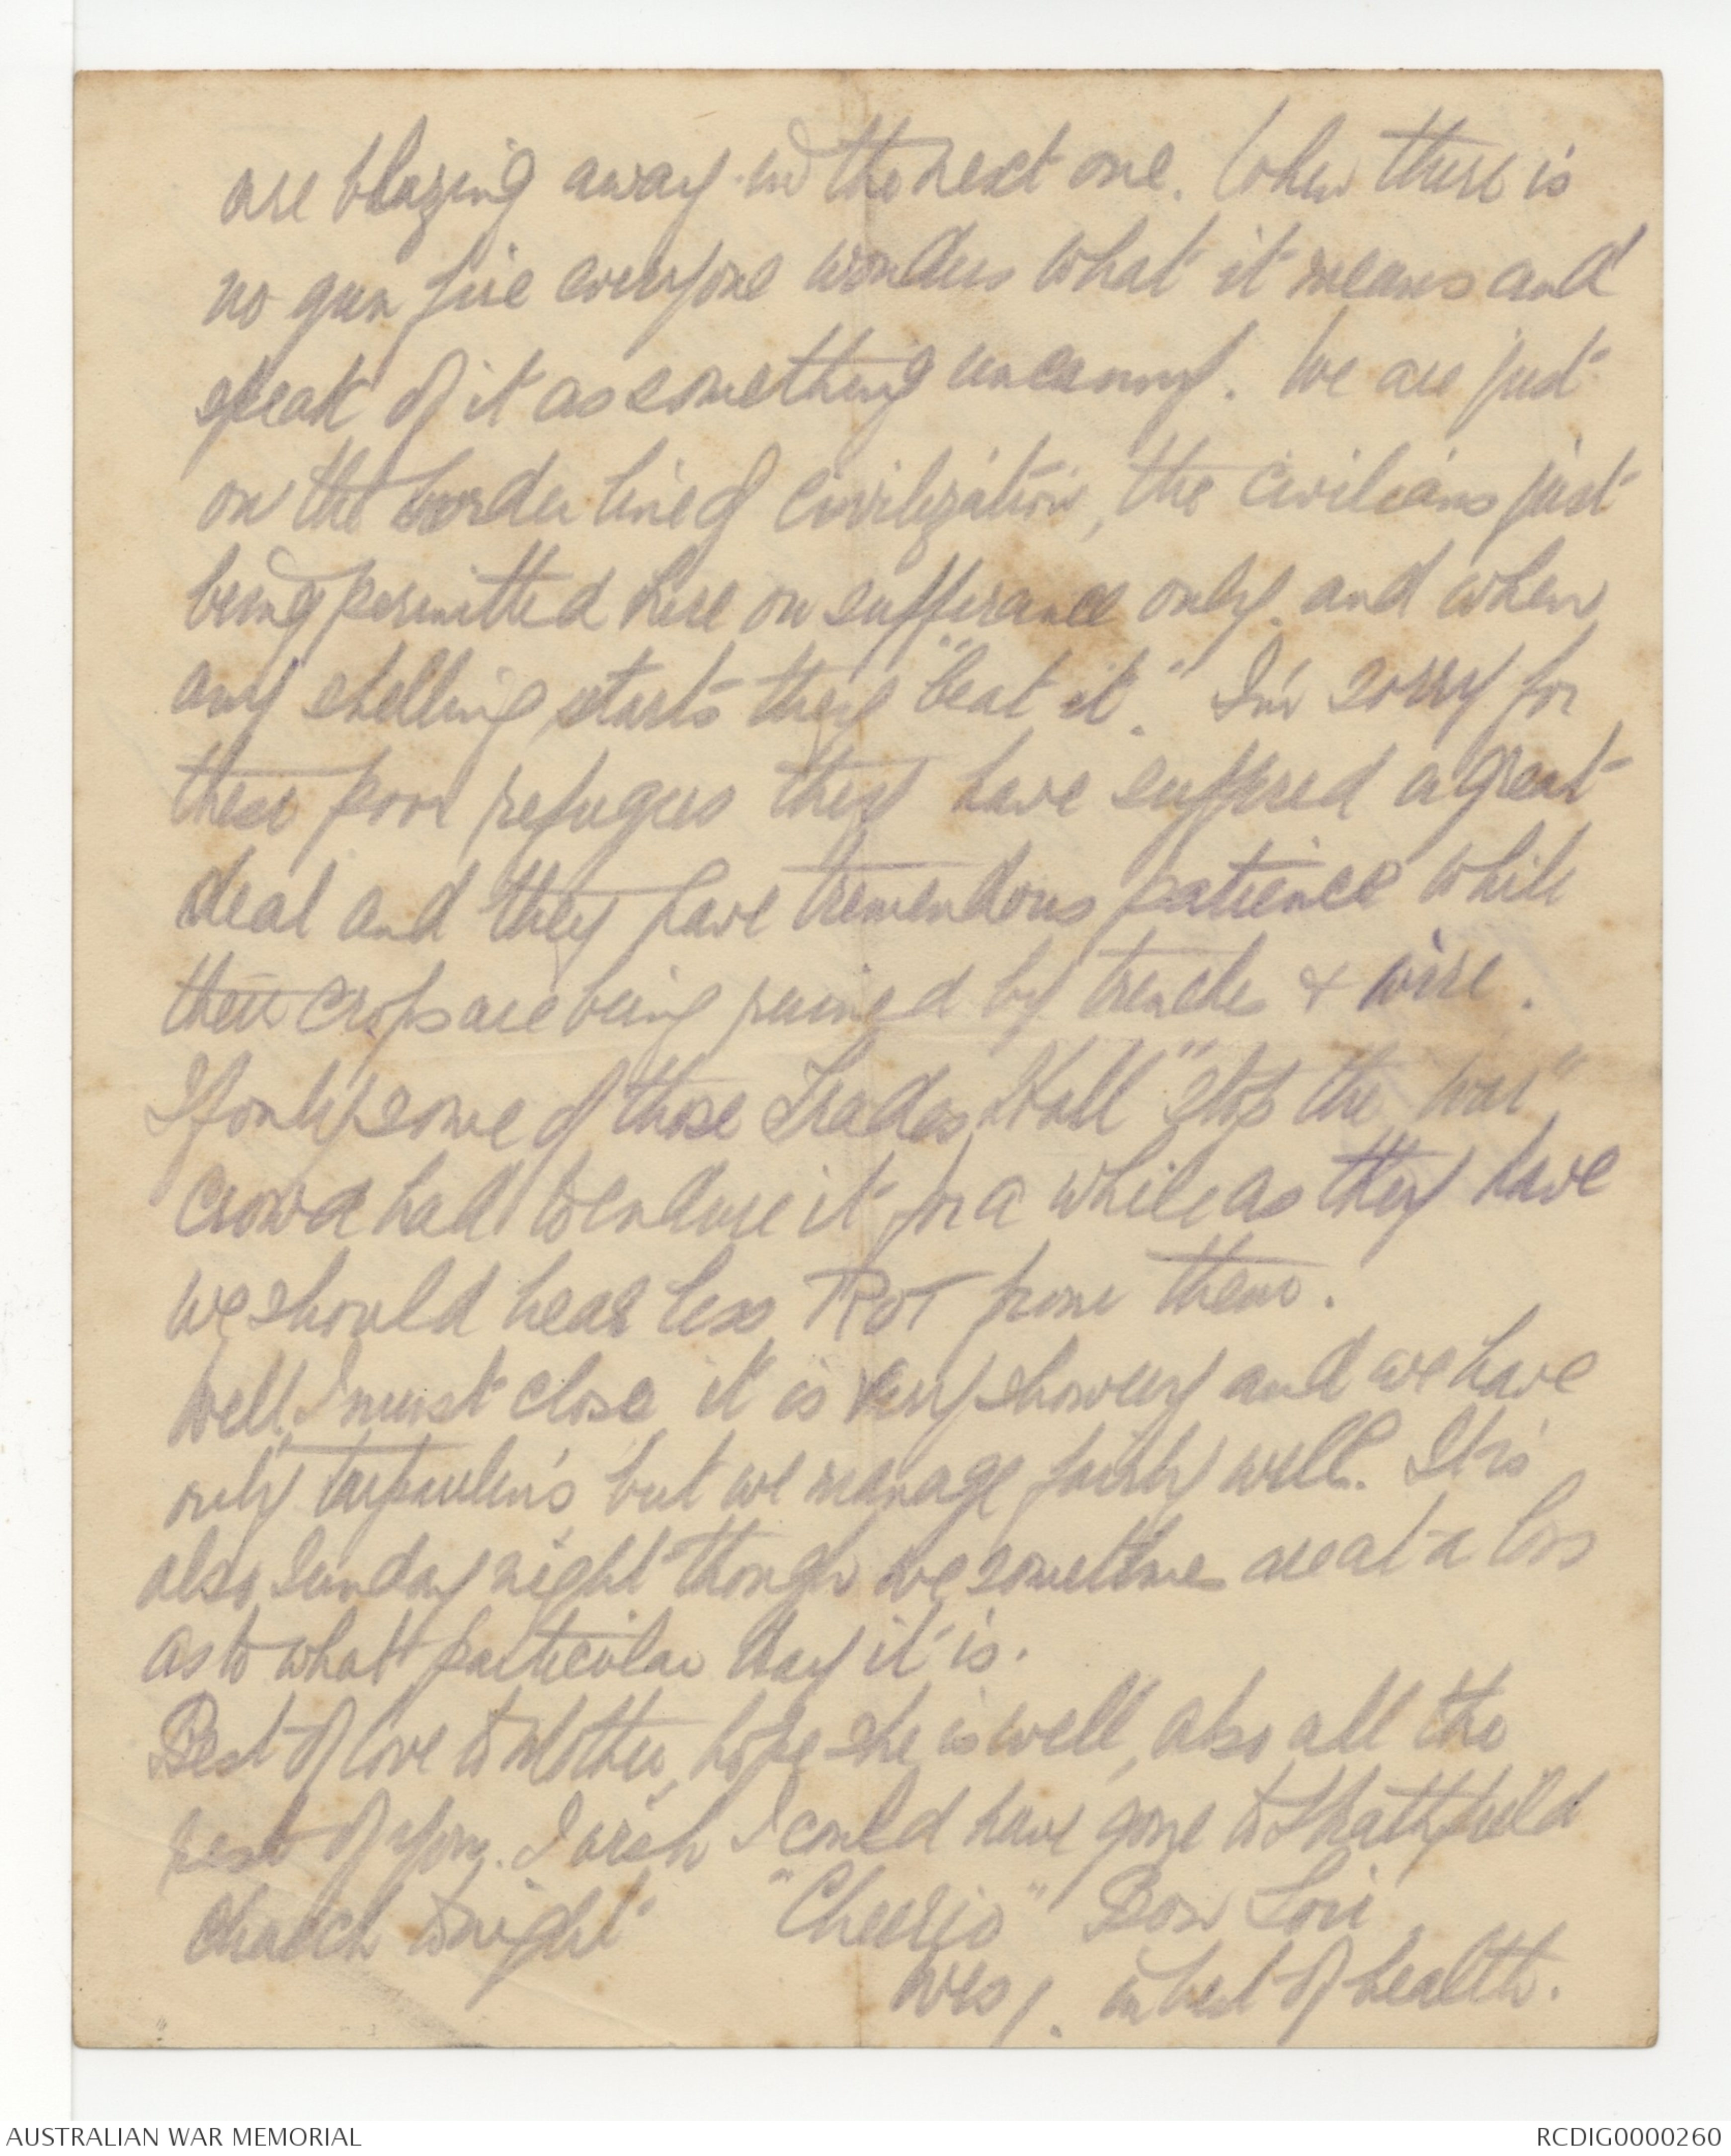 are blazing away in the next one. When there is
no gun fire everyone wonders what it means and
speak of it as something uncanny. We are just
on the border line of civilization, the civilians just
being permitted here on sufferance only. and when
any shelling starts they "beat it." I'm sorry for
these poor refugees they have suffered a great
deal and they have tremendous patience while
their crops are being ruined by trenches & wire.
If only some of those Trades Hall "stop the war"
crowd had to endure it for a while as they have
we should hear less ROT from them.
Well I must close it is very showery and we have
only tarpaulin's but we manage fairly well. It is
also Sunday night though we sometimes are at a loss
as to what particular day it is.
Best of love to Mother, hope she is well, also all the
rest of you. I wish I could have gone to Strathfield
church tonight "Cheerio" Son
Wes. in best of health.
AUSTRALIAN WAR MEMORIAL
RCDIG0000260